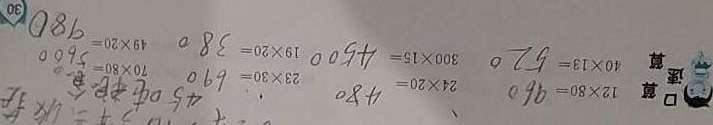 口算
速算
12×80=960 24×20=480 23×30=690 70×80=5600
40×13=520 300×15=4500 19×20=380 49×20=980
30